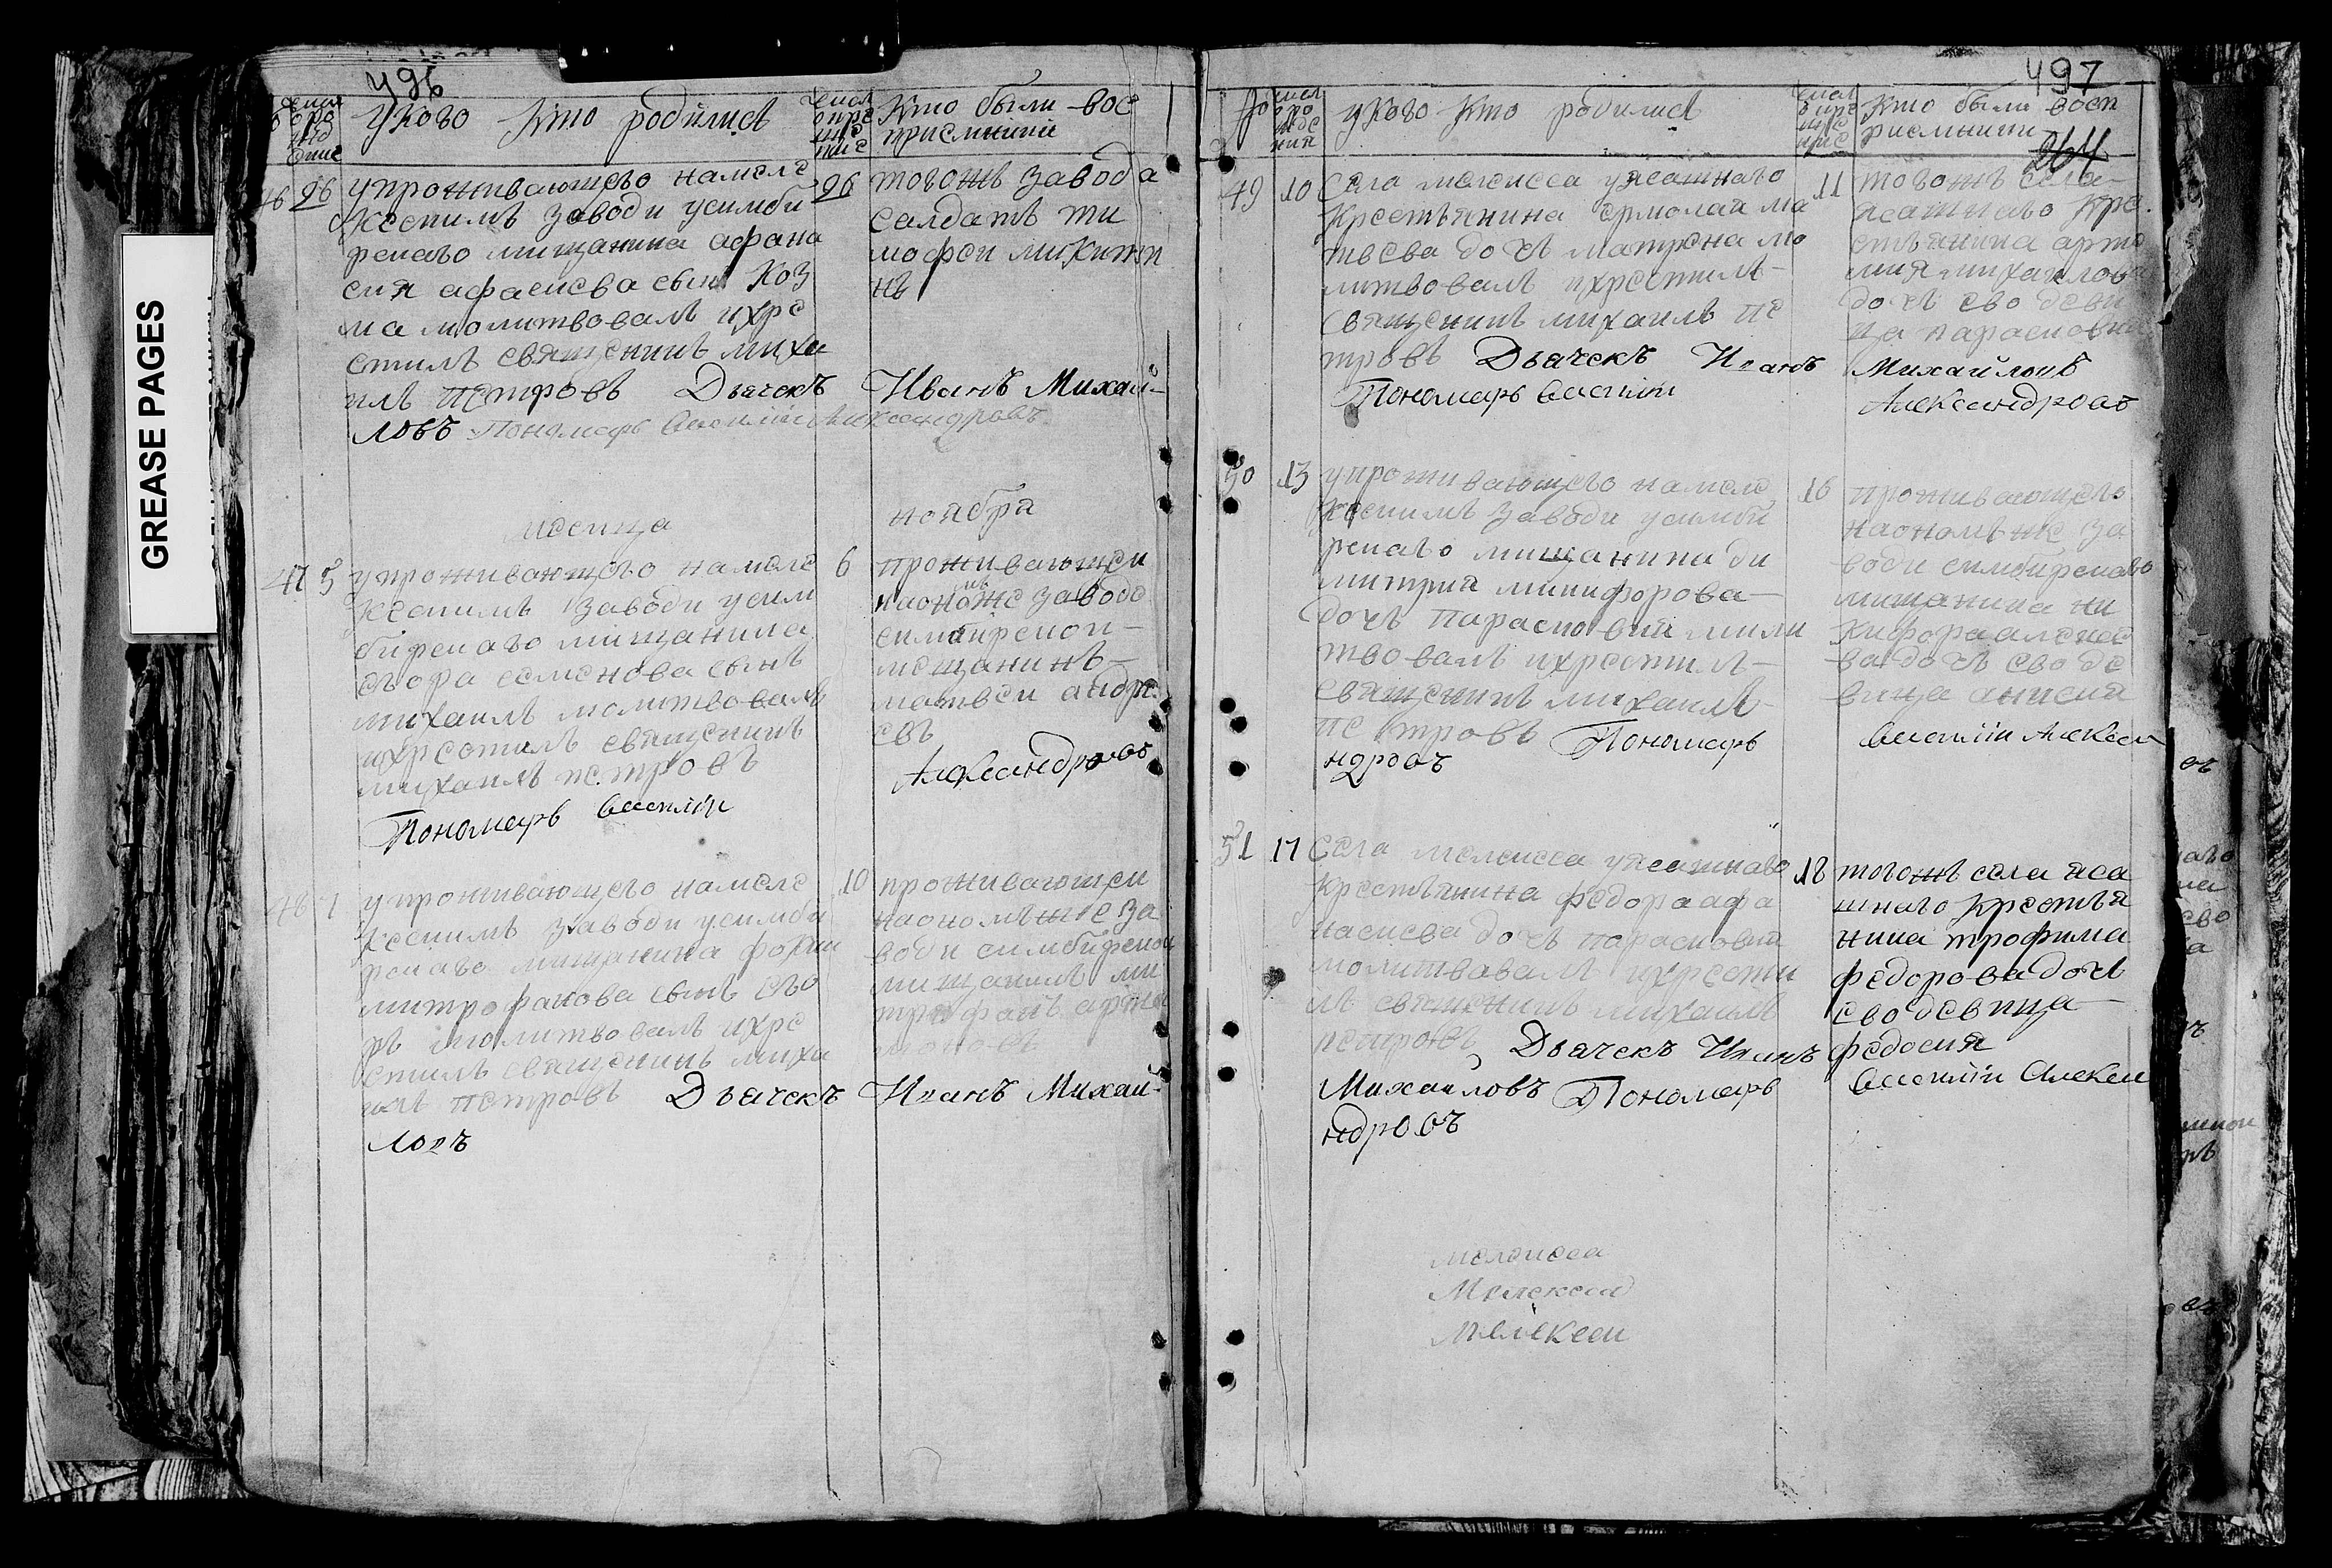 GREASE PAGES
496
числ о рождение
у кого кто родился
числ о крещение
кто были вос
приемники
46 26 упроживающего намеле
кескимъ заводи усимби
рскаго мищанина афана
сия афасиева сынъ Коз
ма молитвовалъ ихре
стилъ священникъ миха
илъ петровъ Дьячекъ Иванъ Михай-
ловъ Пономарь Василій Александровъ
26 тогожъ завода
салдатъ ти
мофеи микити
нъ
месеца ноября
47 5 упроживающего намеле
кескимъ заводи усим
бирскаго мищанина
егора семенова сынъ
михаилъ молитвовалъ
ихрестилъ священникъ
михаилъ петровъ
Пономарь Василій
6 проживающеи
наономже заводе
симбирскои
мещанинъ
матвеи андре
евъ
Александровъ
48 7 упроживающего намеле
кескимъ заводи усимби
рскаго мищанина
митрофанова сынъ его
ръ молитвовалъ ихре
стилъ священникъ миха
илъ петровъ Дьячекъ Иванъ Михай-
ловъ
10 проживающеи
наономъже за
води симбирскои
мищанинъ ми
трофанъ
497
у кого кто родился
кто были восп
риемники
264
49 10 Села мелекесса уясашнаго
крестьянина ермолая ма
твеева дочь матрена мо
литвовалъ ихрестилъ
священникъ михаилъ пе
тровъ Дьячекъ Иванъ Михайловъ
Пономарь Василій Александровъ
11 тогожъ села
ясашнаго кре
стьянина арте
мия михаилова
дочь ево деви
ца парасковия
50 13 упроживающего намеле
кескимъ заводи усимби
рскаго мищанина ди
митрия никифорова
дочь парасковия моли
твовалъ ихрестилъ
священникъ михаилъ
петровъ Пономарь Василій Алекса
ндровъ
16 проживающего
наономъже за
води симбирскаго
мищанина ни
кифора алексее
ва дочь ево де
вица анисия
51 17 Села мелекесса уясашнаво
крестьянина федора афа
насиева дочь парасковия
молитвавалъ ихрести
лъ священникъ михаилъ
петровъ Дьячекъ Иванъ
Михайловъ Пономарь Василій Алекса
ндровъ
18 тогожъ села яса
шнаго крестья
нина трофима
федорова дочь
ево девица
федосия
мелекесса
Мелекесса
Мелекеси